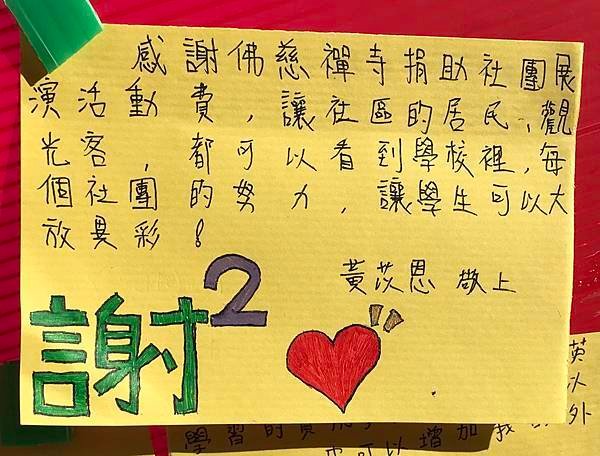 感謝佛慈禪寺捐助社團展
演活動費，讓社區的居民，觀
光客，都可以看到學校裡，每
個社團的努力，讓學生可以大
放異彩！
黃苡恩 敬上
謝2
英
以
外
學習的費
可以增加我